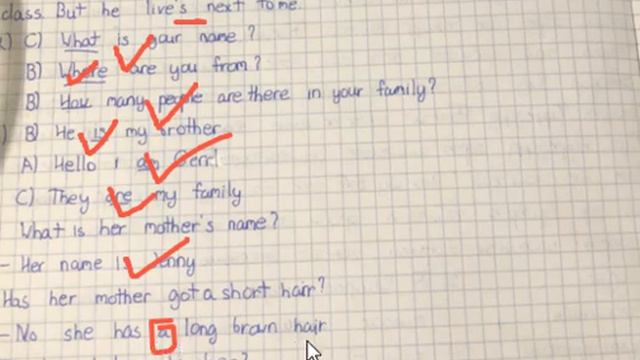 class. But he live's next to me.
C) What is your name ?
B) Where are you from ?
B) How many people are there in your family?
B) He is my brother
A) Hello I am
C) They are my family
What is her mother's name?
- Her name is Jenny
Has her mother got a short hair?
- No she has a long brown hair